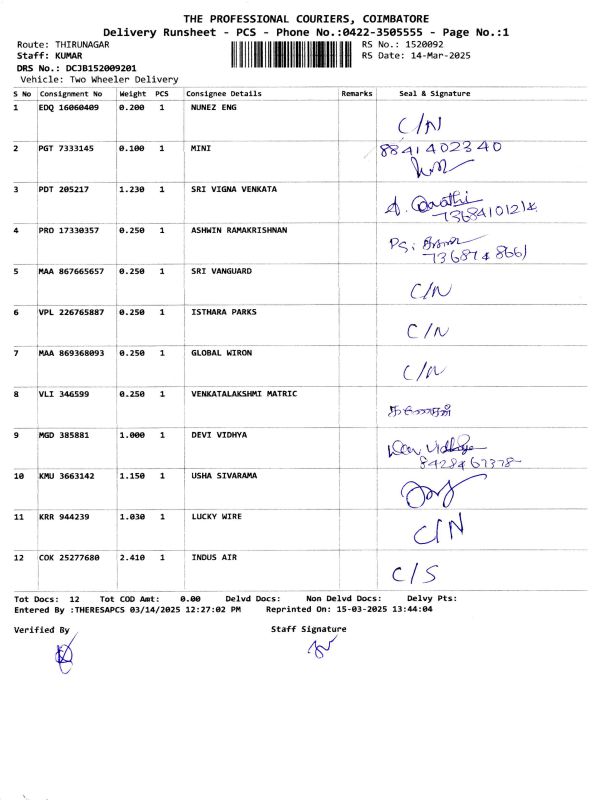 THE PROFESSIONAL COURIERS, COIMBATORE
Delivery Runsheet - PCS - Phone No.:0422-3505555 - Page No.:1
Route: THIRUNAGAR RS No.: 1520092
Staff: KUMAR RS Date: 14-Mar-2025
DRS No.: DCJB152009201
Vehicle: Two Wheeler Delivery
S No Consignment No Weight PCS Consignee Details Remarks Seal & Signature
1 EDQ 16060409 0.200 1 NUNEZ ENG
C/N
2 PGT 7333145 0.100 1 MINI 8841402340
3 PDT 205217 1.230 1 SRI VIGNA VENKATA
4 PRO 17330357 0.250 1 ASHWIN RAMAKRISHNAN
5 MAA 867665657 0.250 1 SRI VANGUARD
C/N
6 VPL 226765887 0.250 1 ISTHARA PARKS
C/N
7 MAA 869368093 0.250 1 GLOBAL WIRON
C/N
8 VLI 346599 0.250 1 VENKATALAKSHMI MATRIC
9 MGD 385881 1.000 1 DEVI VIDHYA
8428467378
10 KMU 3663142 1.150 1 USHA SIVARAMA
11 KRR 944239 1.030 1 LUCKY WIRE
C/N
12 COK 25277680 2.410 1 INDUS AIR
C/S
Tot Docs: 12 Tot COD Amt: 0.00 Delvd Docs: Non Delvd Docs: Delvy Pts:
Entered By :THERESAPCS 03/14/2025 12:27:02 PM Reprinted On: 15-03-2025 13:44:04
Verified By Staff Signature